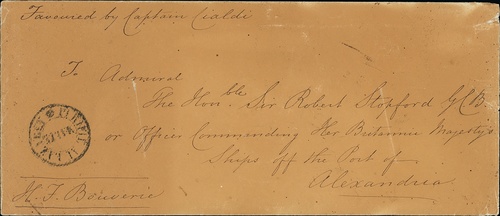 Favoured by Captain Cialdi
To Admiral
The Hon.ble Sir Robert Stopford GCB
or Officer Commanding Her Britannic Majesty's
Ships off the Port of
Alexandria
PURIFIÉ AU LAZARET
H. F. Bouverie